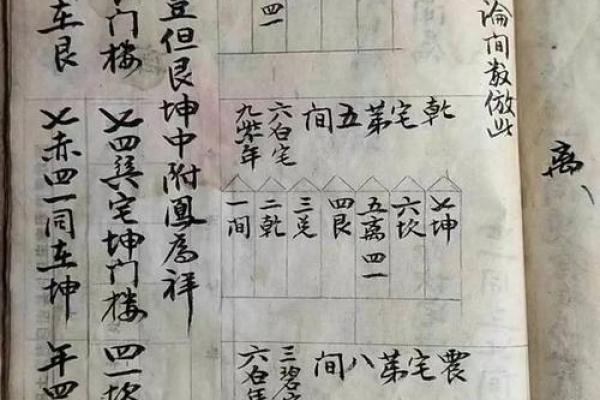 离
論间数倣此
四一
乾宅第五间
六白宅
九紫年
七坤
六坎
五离四一
四艮
三兑
二乾
一间
震宅第八间
三碧
六白
但艮坤中附鳳為祥
门楼
七四巽宅坤门楼
四一坎
在艮
七赤四一同在坤
年四